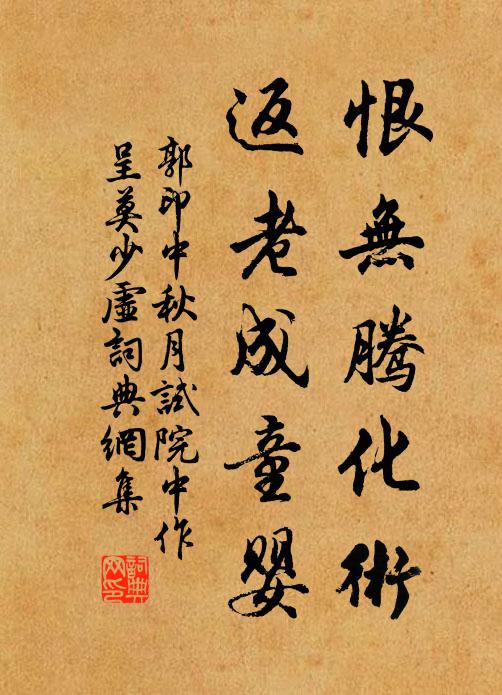 恨無騰化術
返老成童嬰
郭印中秋月試院中作
呈莫少虛詞典網集
詞典网印